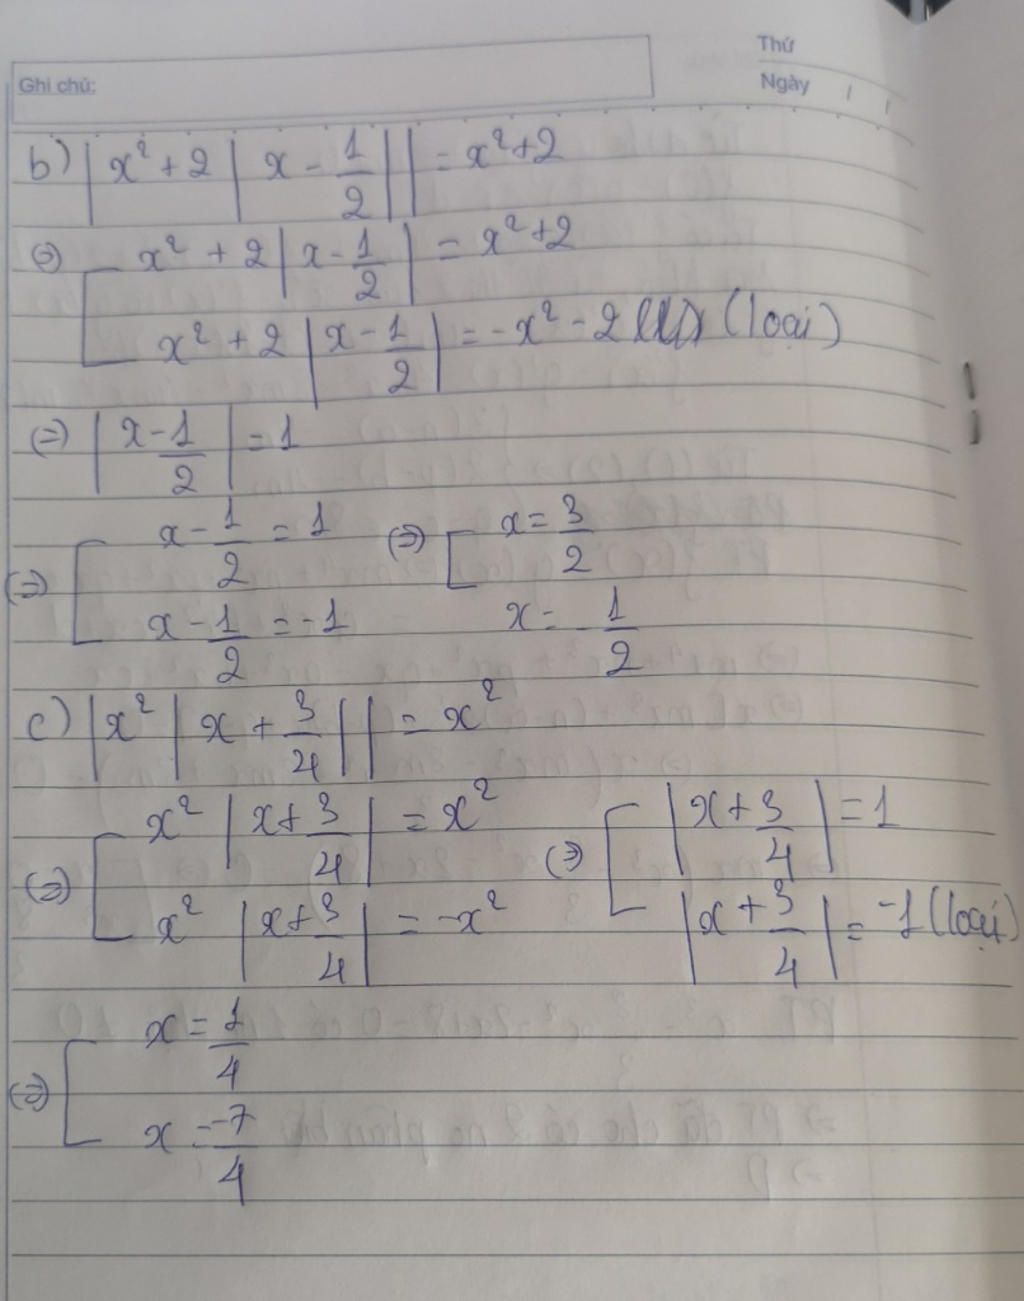 Thứ
Ghi chú:
Ngày / /
b) |x² + 2|x - 1/2|| = x²+2
(=) [ x² + 2|x - 1/2| = x²+2
x² + 2|x - 1/2| = -x² - 2 (loại)
(=) |x - 1/2| = 1
(=) [ x - 1/2 = 1 (=) [ x = 3/2
x - 1/2 = -1 x = -1/2
c) |x²|x + 3/4|| = x²
(=) [ x²|x + 3/4| = x² (=) [ |x + 3/4| = 1
x²|x + 3/4| = -x² |x + 3/4| = -1 (loại)
(=) [ x = 1/4
x = -7/4